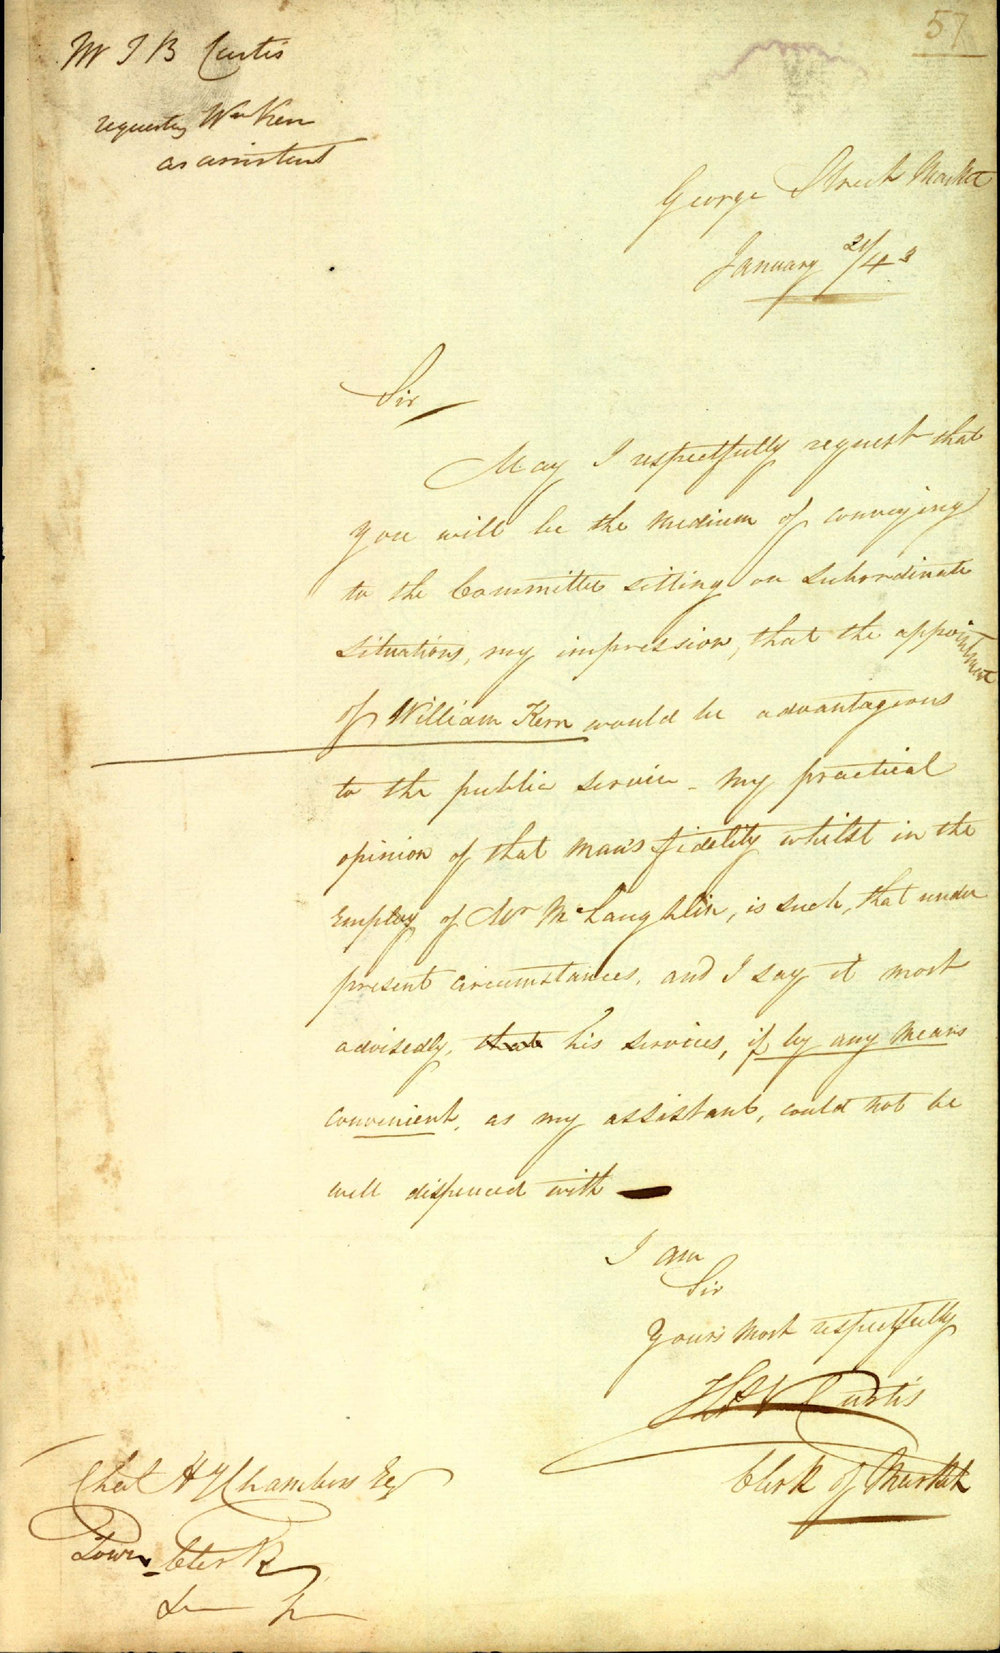 57
Mr J B Curtis
requesting Wm Kern
as assistant
George Street Market
January 21/43
Sir
May I respectfully request that
you will be the medium of conveying
to the Committee sitting on subordinate
situations, my impression, that the appointment
of William Kern would be advantageous
to the public service - my practical
opinion of that man's fidelity whilst in the
Employ of Mr McLaughlin, is such, that under
present circumstances, and I say it most
advisedly, that his services, if by any means
convenient, as my assistant, could not be
well dispenced with —
I am
Sir
Yours most respectfully
Curtis
Clerk of Market
Chas H Chambers Esq
Town Clerk